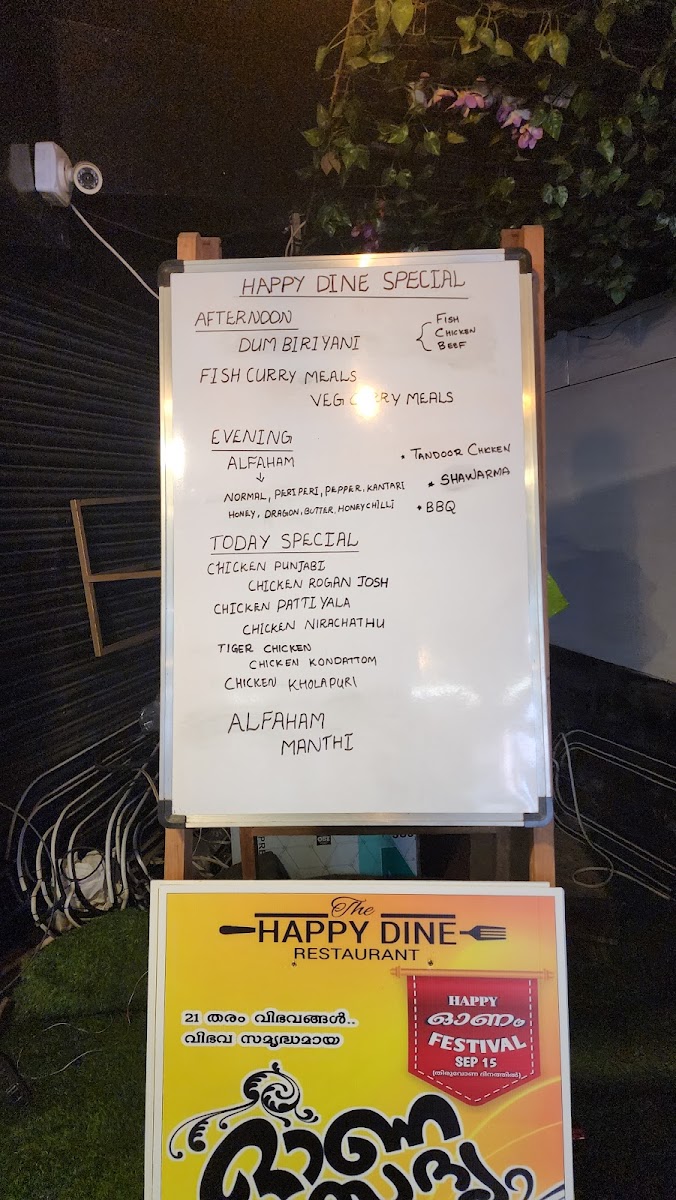 HAPPY DINE SPECIAL
AFTERNOON
DUM BIRIYANI
FISH
CHICKEN
BEEF
FISH CURRY MEALS
VEG CURRY MEALS
EVENING
ALFAHAM
NORMAL, PERIPERI, PEPPER, KANTARI
HONEY, DRAGON, BUTTER, HONEYCHILLI
* TANDOOR CHICKEN
* SHAWARMA
* BBQ
TODAY SPECIAL
CHICKEN PUNJABI
CHICKEN ROGAN JOSH
CHICKEN PATTIYALA
CHICKEN NIRACHATHU
TIGER CHICKEN
CHICKEN KONDATTOM
CHICKEN KHOLAPURI
ALFAHAM
MANTHI
The
HAPPY DINE
RESTAURANT
21 തരം വിഭവങ്ങൾ..
വിഭവ സമൃദ്ധമായ
HAPPY
ഓണം
FESTIVAL
SEP 15
(തിരുവോണ ദിനത്തിൽ)
ഓണ